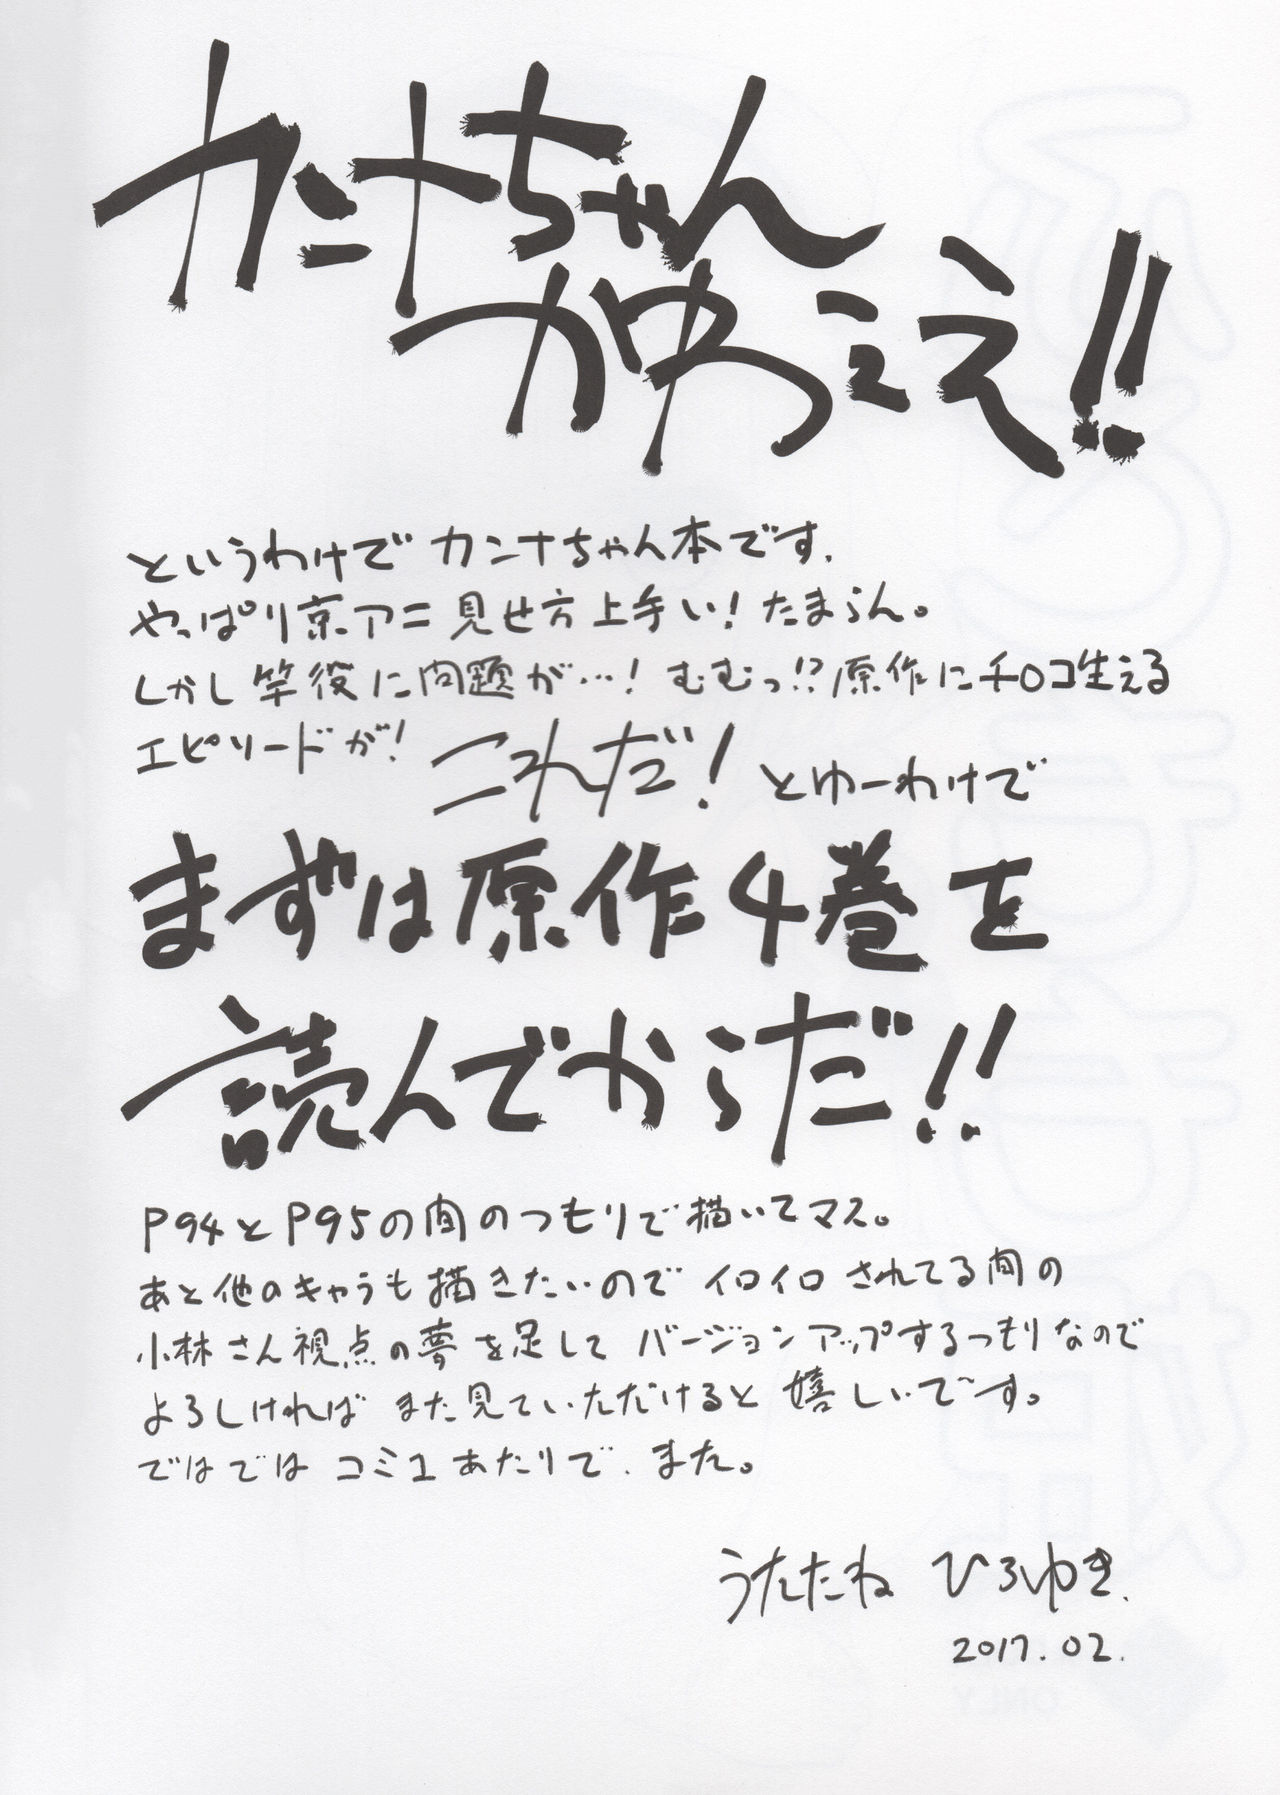 カンナちゃん
かゆっええ!!
というわけで カンナちゃん本です.
やっぱり京アニ 見せ方上手い!たまらん。
しかし竿役に問題が…!むむっ!?原作にチロコ生える
エピソードが! これだ! とゆーわけで
まずは原作4巻を
読んでからだ!!
P94とP95の間のつもりで描いてマス。
あと他のキャラも描きたいので イロイロされてる間の
小林さん視点の夢を足して バージョンアップするつもりなので
よろしければ また見ていただけると嬉しいで~す。
ではでは コミュあたりで.また。
うたたね ひろゆき.
2017.02.
ONLY